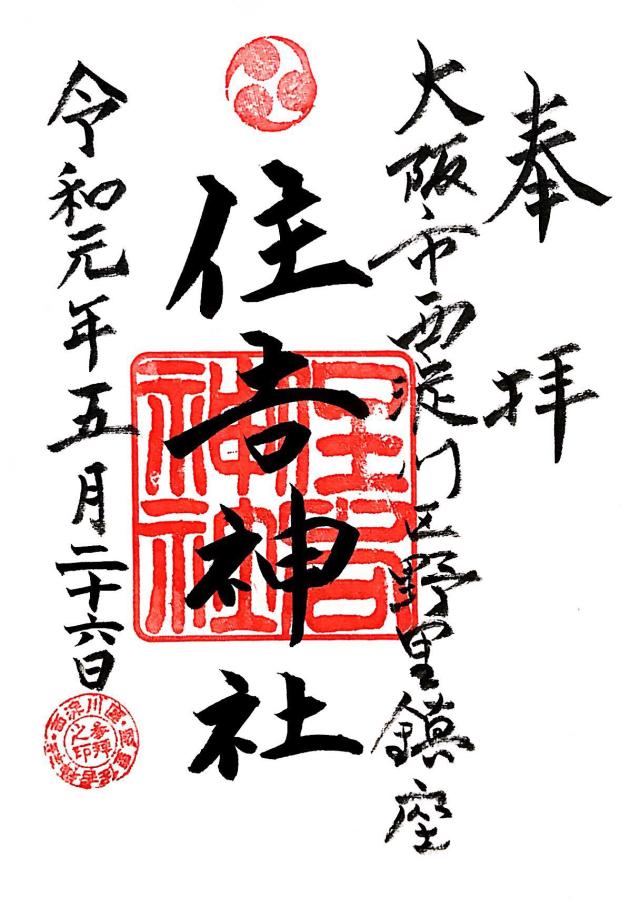 奉拝
大阪市西淀川区野里鎮座
住吉神社
住吉神社
令和元年五月二十六日
参拝之印